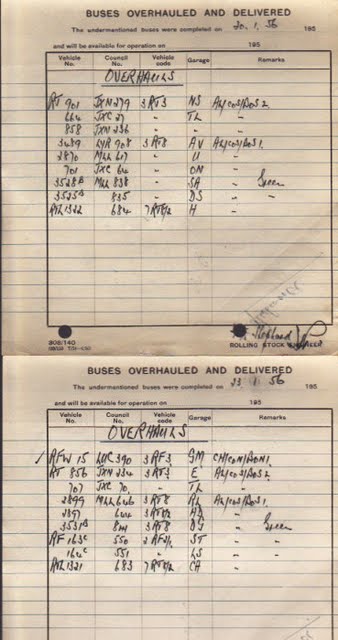 BUSES OVERHAULED AND DELIVERED
The undermentioned buses were completed on 20. 1. 56 195
and will be available for operation on 195
Vehicle No. Council No. Vehicle code Garage Remarks
OVERHAULS
RT 901 JXN 279 3 RT3 NS
664 JXC 27 " TL "
858 JXN 236 " " "
3489 LYR 908 3 RT8 AV
2870 MLL 617 " U "
701 JXC 64 " ON "
3528 MLL 838 " SA " Green
3525 835 " DS " "
RTL 1322 684 7 RT8/2 H "
ROLLING STOCK ENGINEER
808/140
BUSES OVERHAULED AND DELIVERED
The undermentioned buses were completed on 23 1. 56 195
and will be available for operation on 195
Vehicle No. Council No. Vehicle code Garage Remarks
OVERHAULS
RFW 15 LUC 390 3 RF3 GM
RT 856 JXN 234 3 RT3 E
707 JXC 70 " TL "
2899 MLL 646 3 RT8 RL
2897 644 3 RT8
3531 841 3 RT8 DG " Green
RF 163c 550 2 RF2/2 ST " "
164c 551 " LS " "
RTL 1321 683 7 RT8/2 CA "